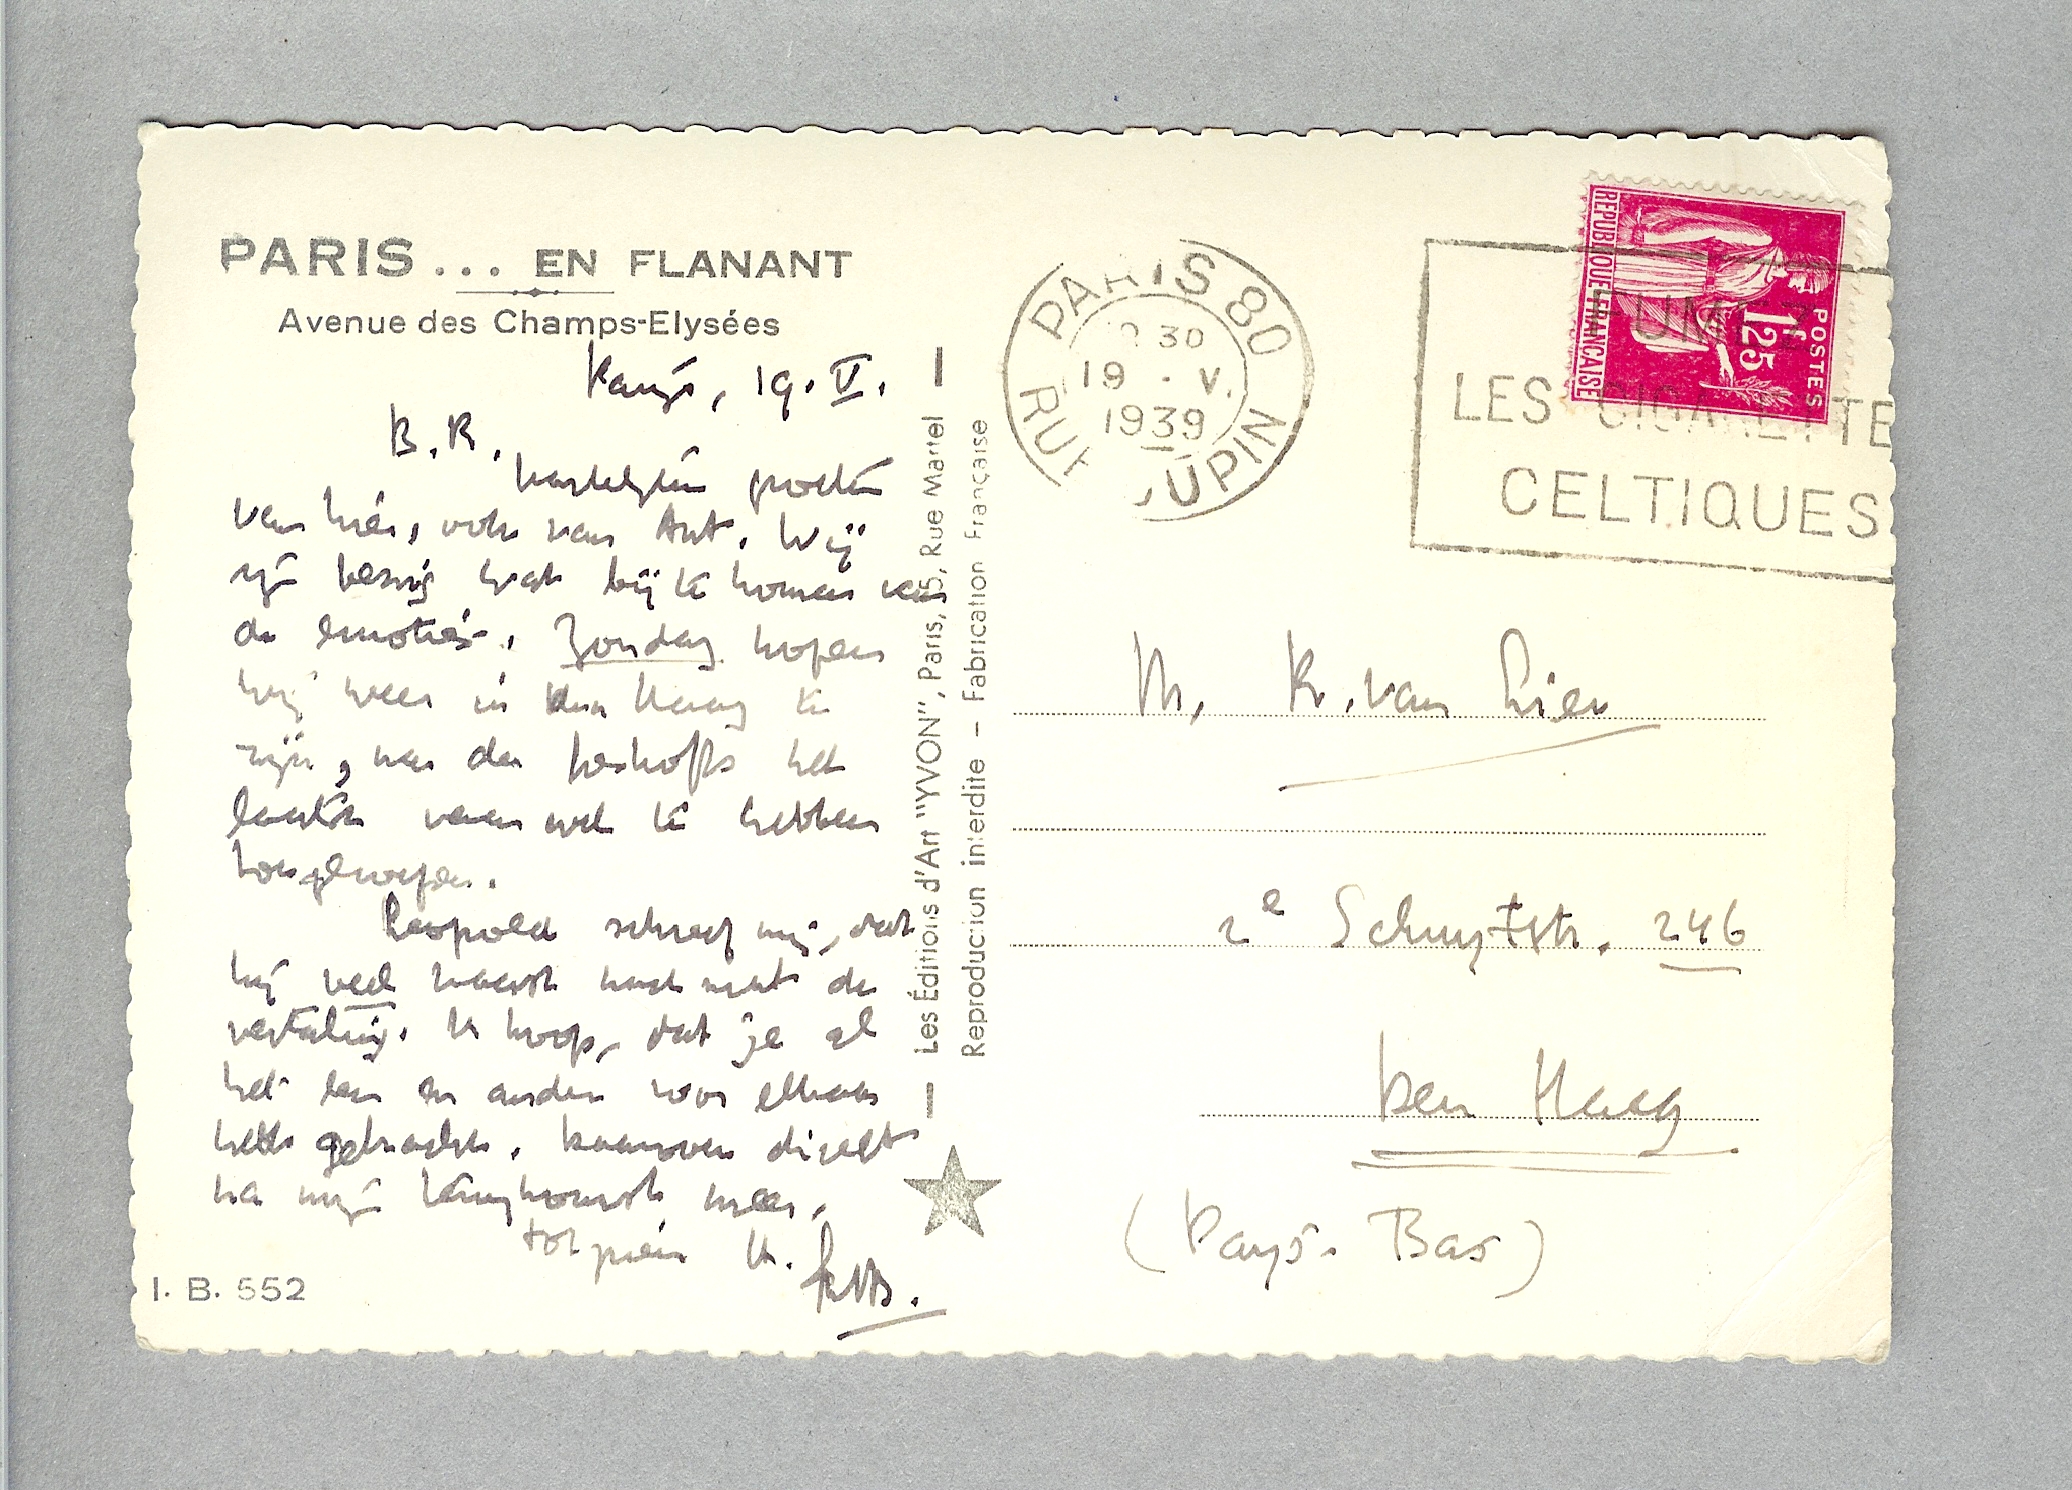 PARIS... EN FLANANT
Avenue des Champs-Elysées
Parijs, 19. V.
B. R.
hartelijke groeten
van hier, ook van Ant. Wij
zijn bezig wat bij te komen van
de emotie's. Zondag hopen
wij weer in den Haag te
zijn, na den het
laatste vaarwel te hebben
toegeroepen.
Leopold schreef mij, dat
hij veel haast had met de
vertaling. Ik hoop, dat je al
het een en ander voor elkaar
hebt gebracht. direct
na mijn terugkomst meer.
tot ziens
I. B. 552
Les Éditions d'Art "YVON", Paris, 15, Rue Martel
Reproduction interdite – Fabrication Française
PARIS 80
30
19 . V.
1939
RUE DUPIN
FUMEZ
LES CIGARETTE
CELTIQUES
REPUBLIQUE FRANÇAISE
POSTES
1f25
M. R. van Lier
2e Schuytstr. 246
Den Haag
(Pays-Bas)